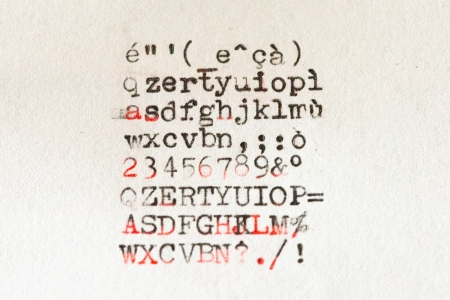 é"'(_e^çà)
qzertyuiopì
asdfghjklmù
wxcvbn,;:ò
23456789&º
QZERTYUIOP=
ASDFGHJKLM%
WXCVBN?./!